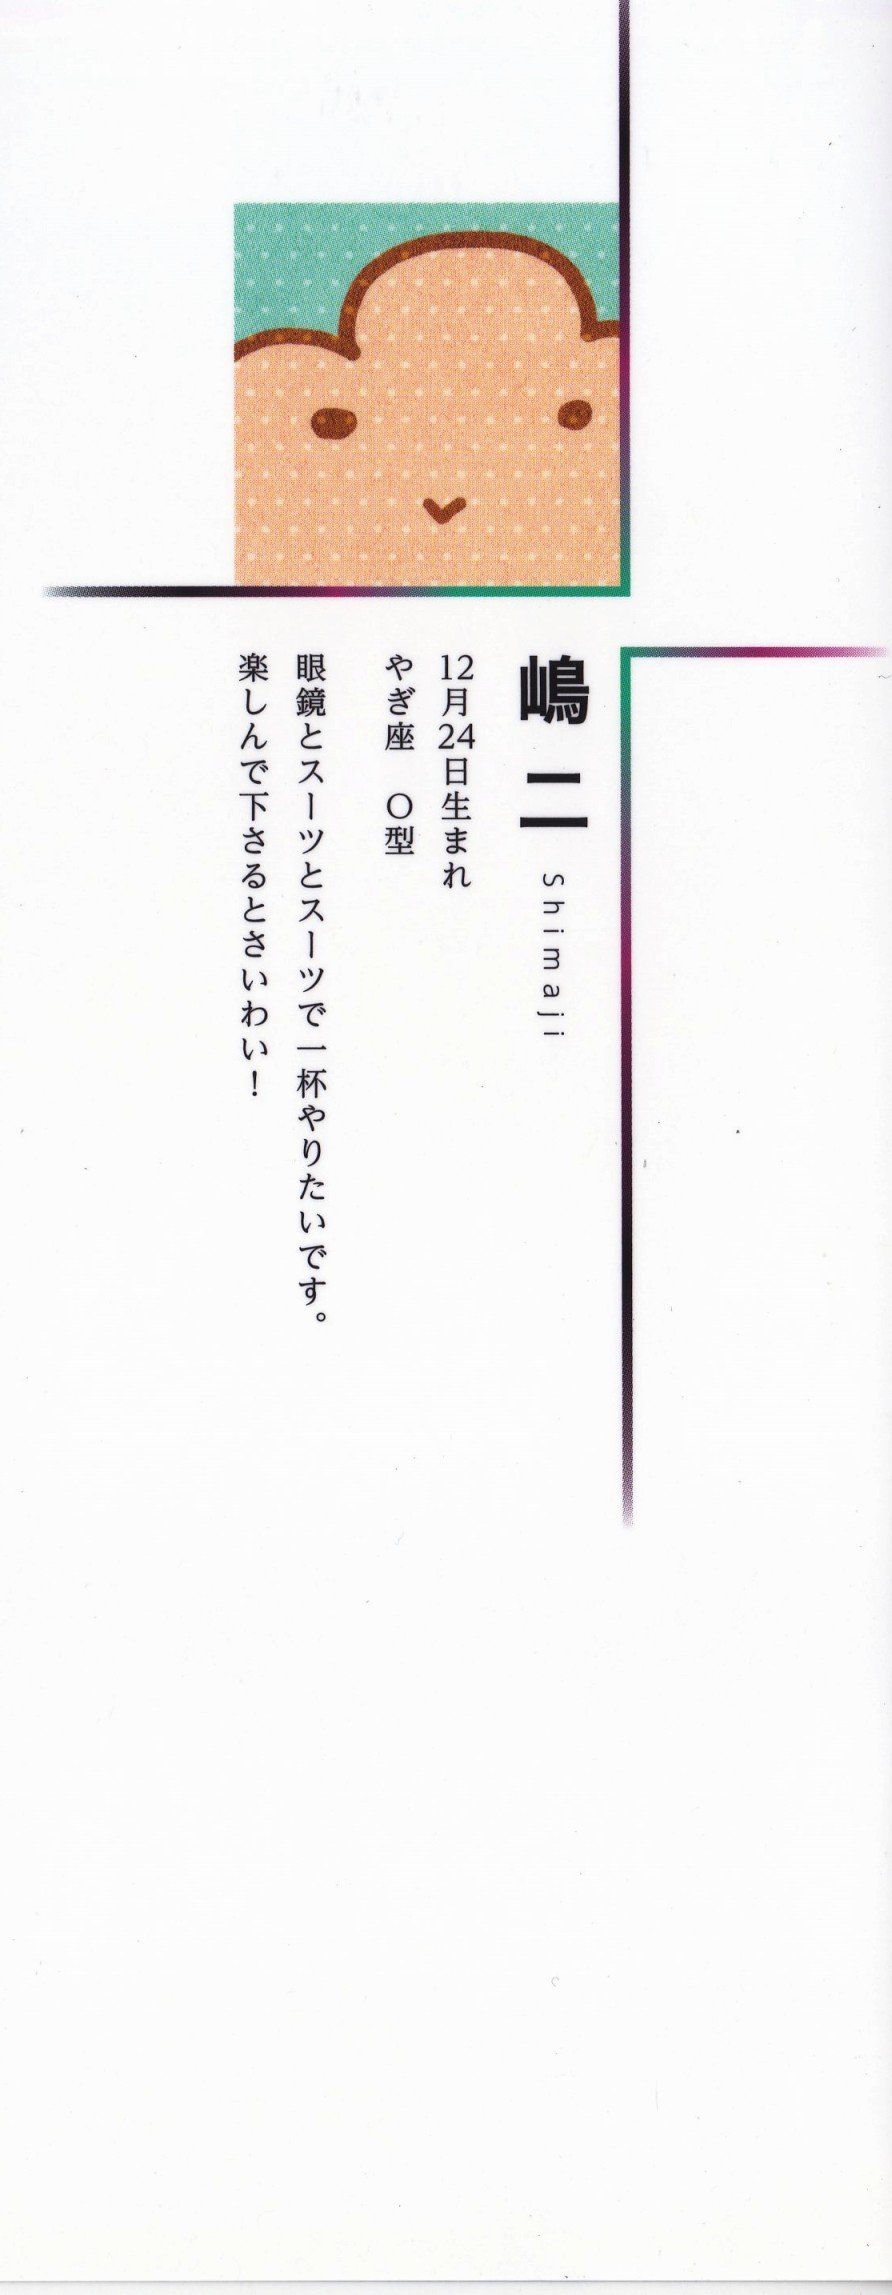 嶋二 Shimaji
12月24日生まれ
やぎ座　O型
眼鏡とスーツとスーツで一杯やりたいです。
楽しんで下さるとさいわい！